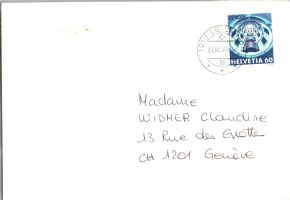 HELVETIA 60
Madame
WIDMER Claudine
13 Rue des Grottes
CH 1201 Genève